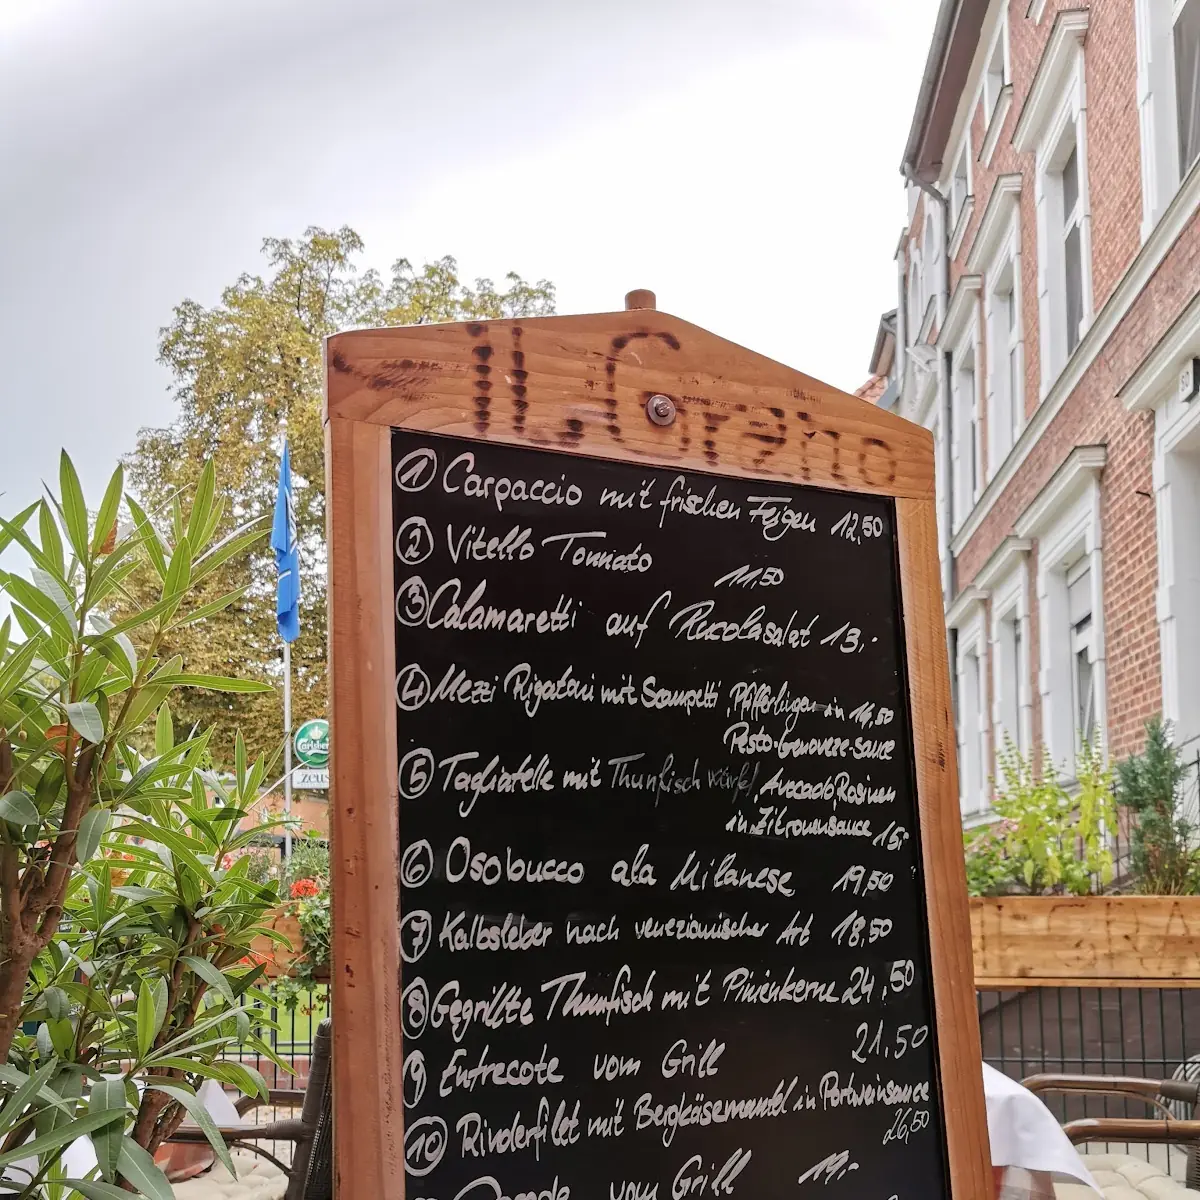 IL Greeno
1 Carpaccio mit frischen Feigen 12,50
2 Vitello Tonnato 11,50
3 Calamaretti auf Rucolasalat 13,-
4 Mezzi Rigatoni mit Scampetti, Pfifferlingen in 16,50
Pesto-Genoveze-Sauce
5 Tagliatelle mit Thunfisch würfel, Avocado, Rosinen
in Zitronensauce 15,-
6 Osobucco ala Milanese 19,50
7 Kalbsleber nach venezianischer Art 18,50
8 Gegrillte Thunfisch mit Pinienkerne 24,50
9 Entrecote vom Grill 21,50
10 Rinderfilet mit Bergkäsemantel in Portweinsauce
26,50
vom Grill 19,-
Carlsberg
ZEUS
80